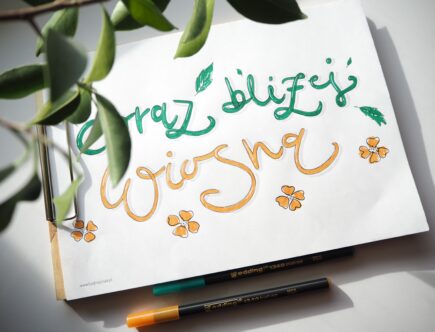 Coraz bliżej
wiosna
edding 1340
edding 1340